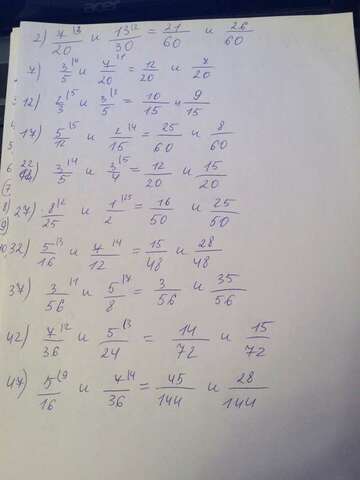 acer
2) 7/20 |3 и 13/30 |2 = 21/60 и 26/60
7) 3/5 |4 и 7/20 |1 = 12/20 и 7/20
12) 2/3 |5 и 3/5 |3 = 10/15 и 9/15
17) 5/12 |5 и 2/15 |4 = 25/60 и 8/60
22) 3/5 |4 и 3/4 |5 = 12/20 и 15/20
27) 8/25 |2 и 1/2 |25 = 16/50 и 25/50
32) 5/16 |3 и 7/12 |4 = 15/48 и 28/48
37) 3/56 |1 и 5/8 |7 = 3/56 и 35/56
42) 7/36 |2 и 5/24 |3 = 14/72 и 15/72
47) 5/16 |9 и 7/36 |4 = 45/144 и 28/144